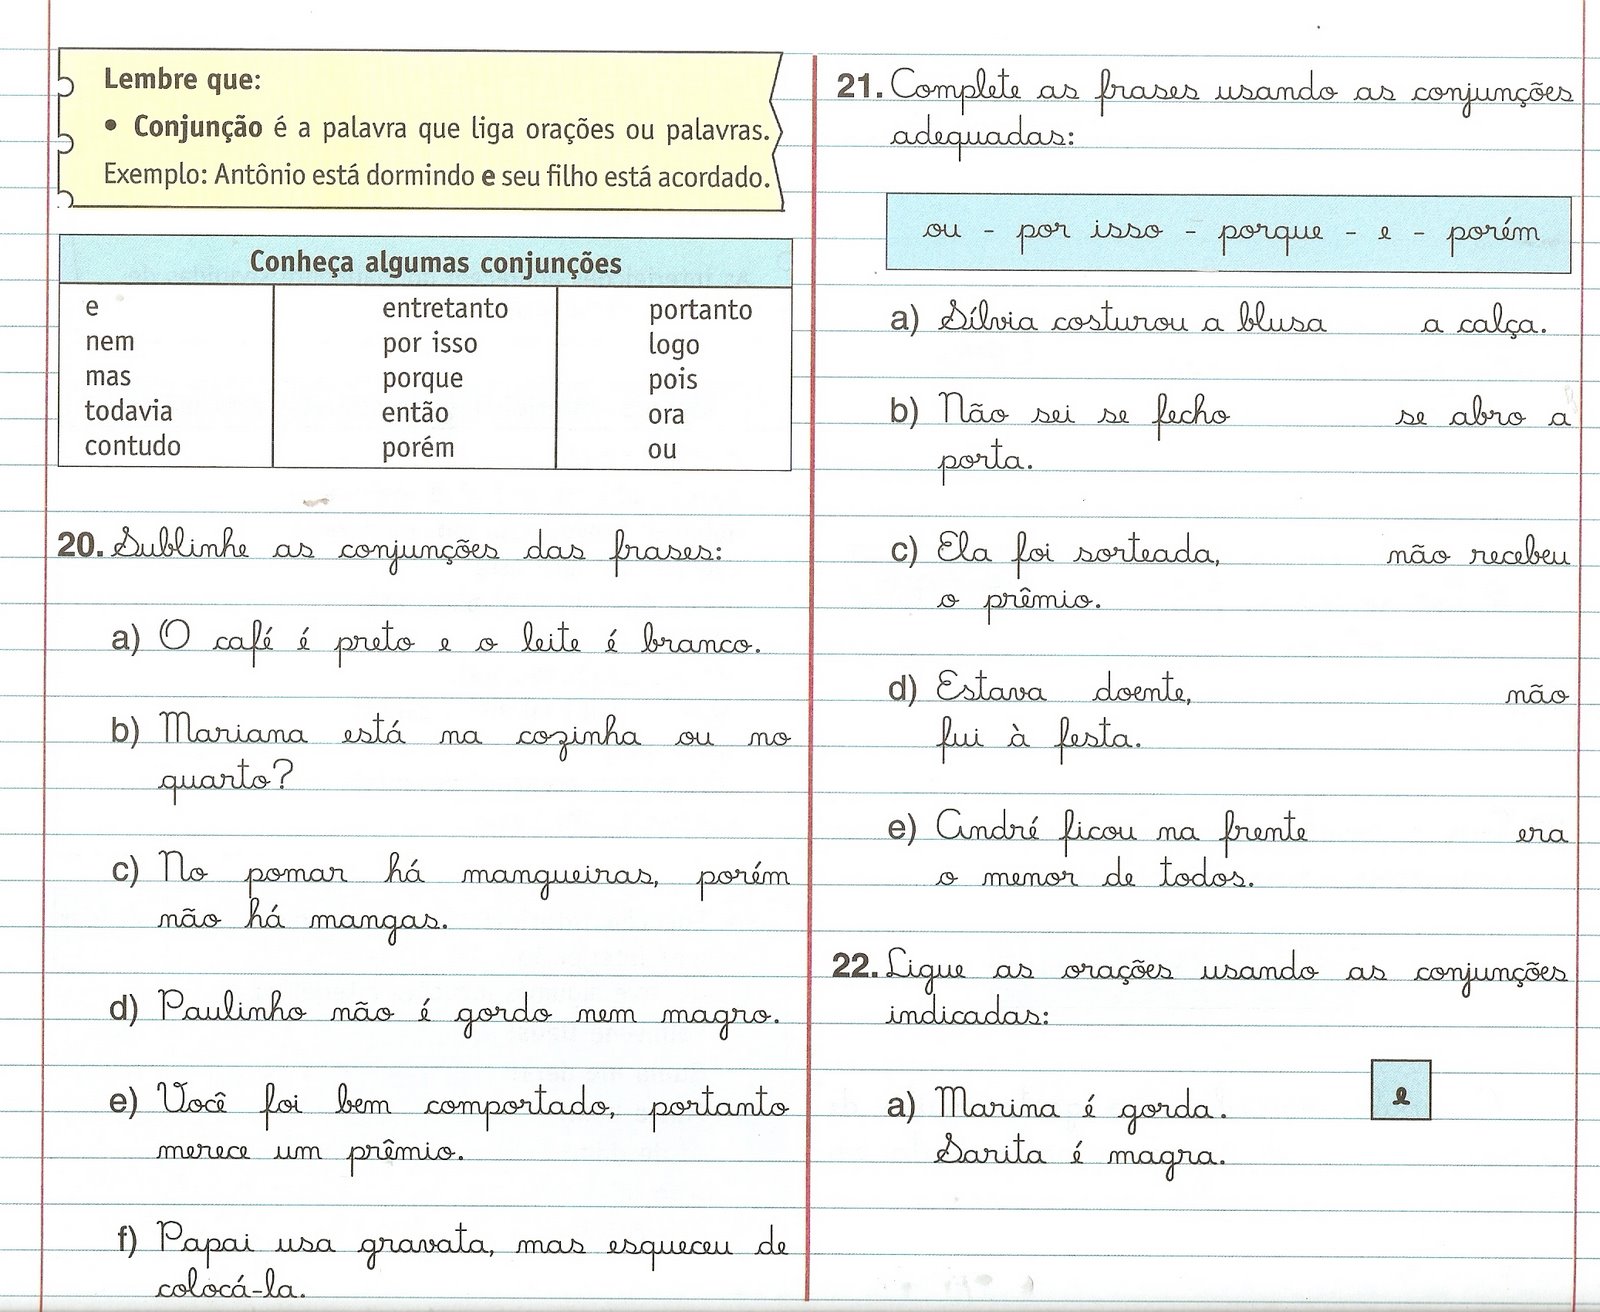 Lembre que:
• Conjunção é a palavra que liga orações ou palavras.
Exemplo: Antônio está dormindo e seu filho está acordado.
Conheça algumas conjunções
e entretanto portanto
nem por isso logo
mas porque pois
todavia então ora
contudo porém ou
20. Sublinhe as conjunções das frases:
a) O café é preto e o leite é branco.
b) Mariana está na cozinha ou no
quarto?
c) No pomar há mangueiras, porém
não há mangas.
d) Paulinho não é gordo nem magro.
e) Você foi bem comportado, portanto
merece um prêmio.
f) Papai usa gravata, mas esqueceu de
colocá-la.
21. Complete as frases usando as conjunções
adequadas:
ou - por isso - porque - e - porém
a) Sílvia costurou a blusa a calça.
b) Não sei se fecho se abro a
porta.
c) Ela foi sorteada, não recebeu
o prêmio.
d) Estava doente, não
fui à festa.
e) André ficou na frente era
o menor de todos.
22. Ligue as orações usando as conjunções
indicadas:
a) Marina é gorda. e
Sarita é magra.